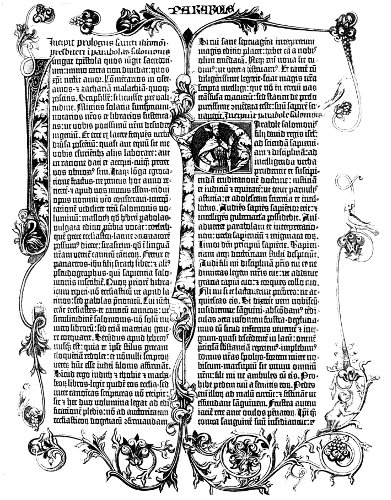 PARABOLE
Incipit prologus sancti iheronimi
presbiteri i parabolas salomonis
Iungat epistola quos iungit sacer-
dotium: immo carta non dividat: quos
xpi nectit amor. Cōmētarios in osee
amos et zachariā malachiā quoqȝ
poscitis. Scripsissē: si licuisset pre vali-
tudine. Mittitis solacia sumptuum
notarios nr̄os et librarios sustenta-
tis: ut vobis potissimū nr̄m desudet
ingeniū. Et ecce ex latere frequēs turba
diūsa poscentiū: quasi aut equū sit me
vobis esuriētibȝ aliis laborare: aut
in ratione dati et accepti: cuiqȝ preter
vos obnoxiꝰ sim. Itaqȝ lōga egrota-
tione fractus ne penitus hoc anno reti-
cerē et apud vos mutus essem: tridui
opus nomini vr̄o consecravi: inter-
pretationē videlicet triū salomonis vo-
luminū: masloth qd̄ hebrei pabolas
vulgata editio pūbia vocat: coeleth
quē grece ecclesiasten latine cōcionatorē
possumꝰ dicere: sirasirim qd̄ i linguā
nr̄am vertit canticū canticorꝝ. Fertur et
panaretos ihū filii sirach liber: et aliꝰ
pseudographus: qui sapientia salo-
monis inscribit. Quorꝝ priorē hebra-
icum reperi: nō ecclesiasticū ut apud la-
tinos: sed pabolas p̄notatū. Cui iūcti
erāt ecclesiastes et canticū canticorꝝ: ut
similitudinē salomonis nō solū nu-
mero librorū: sed etiā materiaꝝ gene-
re coequaret. Secūdus apud hebreos
nusqȝ est: quia et ipse stilus grecam
eloquētiā redolet: et nōnulli scriptoꝝ
veteꝝ hūc esse iudei filonis affirmāt.
Sicut ergo iudith et thobie et macha-
beoꝝ libros legit quidē eos ecclesia: sed
inter canonicas scripturas nō recipit:
sic et hec duo volumina legat ad edi-
ficationē plebis: nō ad auctoritatem
ecclesiasticoꝝ dogmatū cōfirmandam.
Si cui sane septuaginta interpretum
magis editio placet: habet eā a nobis
olim emēdatā. Neqȝ enī nova sic cu-
dimꝰ: ut vetera destruamꝰ. Et tamē cū
diligētissime legerit: sciat magis nr̄a
scripta intelligi: que nō in terciū vas
trāsfusa coacuerīt: sed statim de prelo
purissime cōmēdata teste: suū saporē ser-
vaverīt. Incipiūt parabole salomonis
Parabole salomonis
filii david regis isrl̄:
ad sciendā sapienti-
am et disciplinā: ad
intelligendā verba
prudentie et suscipi-
endā eruditionē doctrine: iusticiā
et iudiciū et equitatē: ut detur parvulis
astutia: et adolescenti scientia et intel-
lectus. Audiēs sapiēs sapientior erit: et
intelligēs gubernacula possidebit. Ani-
advertet parabolam et interpretatio-
nem: verba sapientiū et enigmata eoꝝ.
Timor dn̄i principiū sapientie. Sapien-
tiam atqȝ doctrinam stulti despiciūt.
Audi fili mi disciplinā pr̄is tui et ne
dimittas legem mr̄is tue: ut addatur
gratia capiti tuo: et torques collo tuo.
Fili mi si te lactaverint pctōres: ne ac-
quiescas eis. Si dixerīt veni nobiscū:
insidiemur sanguini: abscōdamꝰ tēdi-
culas cōtra insontem frustra: degluti-
amus eū sicut infernus viventē: et in-
tegrum quasi descēdentē in lacum: om̄nē
p̄ciosā substātiā reperiemꝰ: implebimꝰ
domus nr̄as spoliis: sortem mitte no-
biscum: marsupiū unum sit omniū
nr̄m: fili mi ne ambules cū eis. Pro-
hibe pedem tuū a semitis eoꝝ. Pedes
enī illoꝝ ad malū currūt: et festinant ut
effundant sanguinem. Frustra autem
iacit rete ante oculos pēnatoꝝ. Ipi qȝ
contra sanguinē suū insidiantur: et